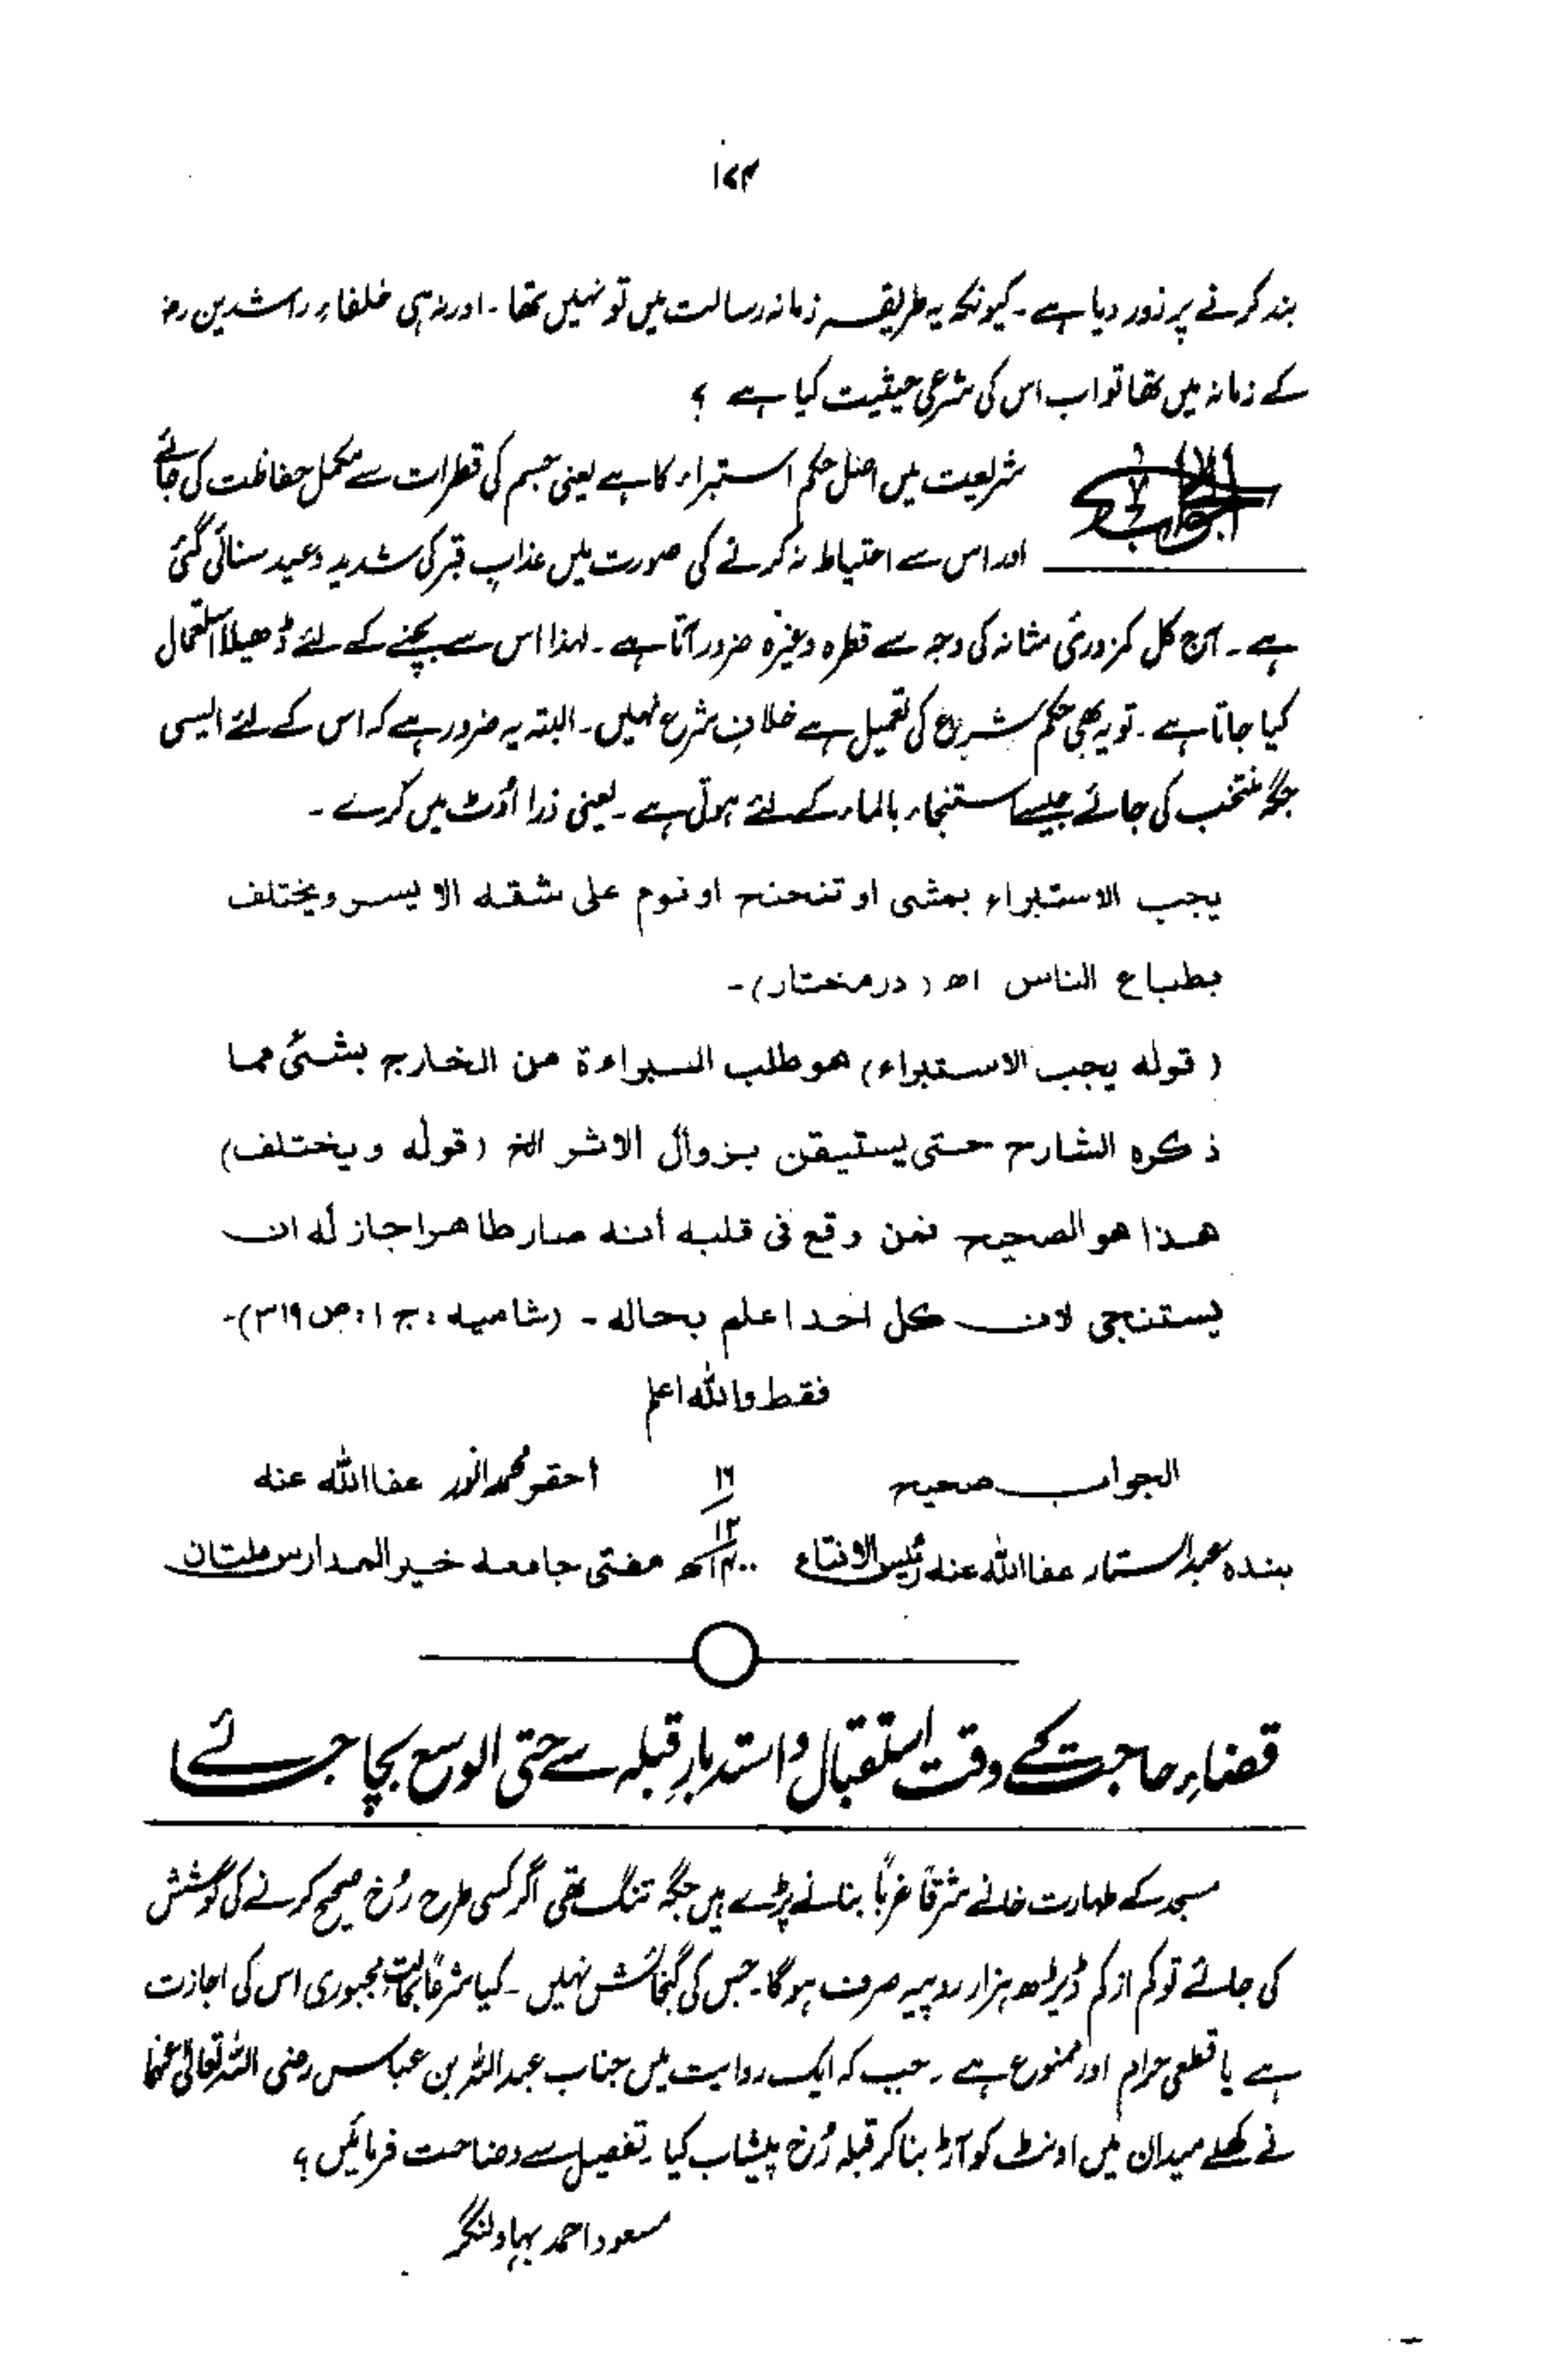 ۱۷۴
بند کرنے پر زور دیا ہے ۔ کیونکہ یہ طریقہ زمانہ رسالت میں تو نہیں تھا ۔ اور نہ ہی خلفاءِ راشدین رضؓ
کے زمانہ میں تھا تو اب اس کی شرعی حیثیت کیا ہے ؟
الجواب شریعت میں اصل حکم استبراء کا ہے یعنی جسم کی قطرات سے مکمل حفاظت کی جائے
اور اس سے احتیاط نہ کرنے کی صورت میں عذابِ قبر کی شدید وعید سنائی گئی
ہے ۔ آج کل کمزوریٔ مثانہ کی وجہ سے قطرہ وغیرہ ضرور آتا ہے ۔ لہذا اس سے بچنے کے لئے ڈھیلا استعمال
کیا جاتا ہے ۔ تو یہ بھی حکم شرع کی تعمیل ہے خلافِ شرع نہیں ۔ البتہ یہ ضرور ہے کہ اس کے لئے ایسی
جگہ منتخب کی جائے جیسے استنجاء بالماء کے لئے ہوتی ہے ۔ یعنی ذرا اوٹ میں کرے ۔
يجب الاستبراء بمشى او تنحنح او نوم على شقه الايسر ويختلف
بطباع الناس اھ (درمختار)۔
(قوله يجب الاستبراء) هو طلب البراءة من الخارج بشئ مما
ذكره الشارح حتى يستيقن بزوال الاثر الخ (قوله ويختلف)
هذا هو الصحيح فمن وقع فى قلبه أنه صار طاهرا جاز له ان
يستنجى لان كل احد اعلم بحاله ۔ (شاميه : ج ۱ : ص ۳۱۹)۔
فقط واللہ اعلم
الجواب صحیح ۱۶ احقر محمد انور عفا اللہ عنہ
بندہ عبد الستار عفا اللہ عنہ رئیس الافتاء ۱۲ / ۱۴۰۰ھ مفتی جامعہ خیر المدارس ملتان
قضاءِ حاجت کے وقت استقبال و استدبارِ قبلہ سے حتی الوسع بچا جائے
مسجد کے طہارت خانے شرقاً غرباً بنانے پڑے ہیں جگہ تنگ تھی اگر کسی طرح رُخ صحیح کرنے کی کوشش
کی جائے تو کم از کم ڈیڑھ ہزار روپیہ صرف ہوگا ۔ جس کی گنجائش نہیں ۔ کیا شرعاً بحالتِ مجبوری اس کی اجازت
ہے یا قطعی حرام اور ممنوع ہے ۔ جب کہ ایک روایت میں جناب عبداللہ بن عباس رضی اللہ تعالیٰ عنہما
نے کھلے میدان میں اونٹ کو آڑ بنا کر قبلہ رُخ پیشاب کیا ۔ تفصیل سے وضاحت فرمائیں ؟
مسعود احمد بہاولنگر